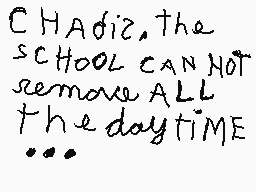 CHAdiz, the
SCHOOL CAN NOT
remove ALL
the daytiME
...